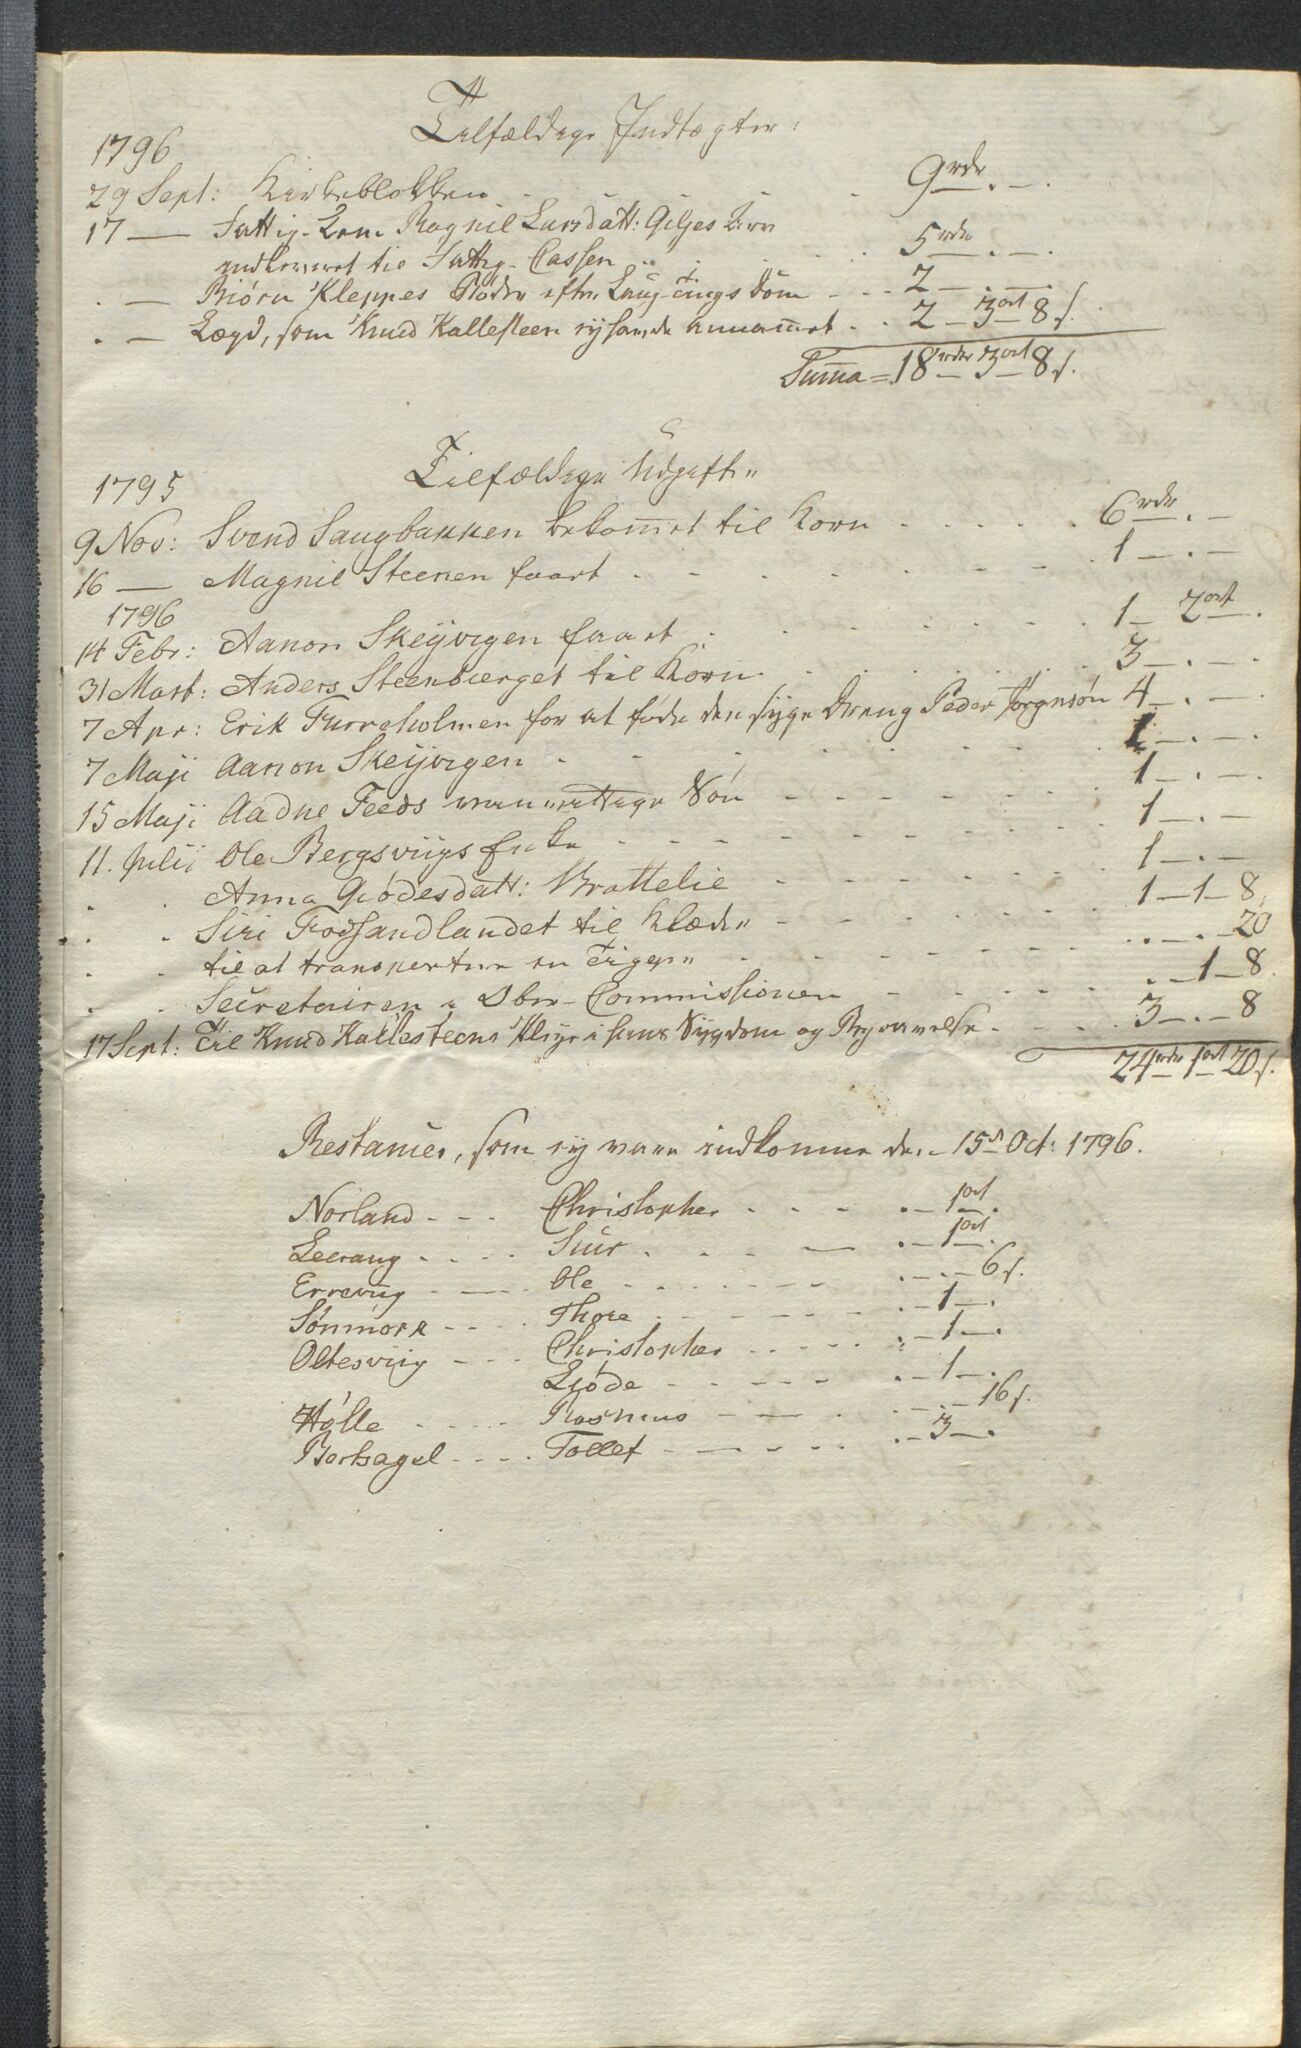 Tilfældige Indtægter:
1796
29 Sept: Kirkeblokken - - - - 9 rdr. -
17 — Fattig-Lem Ragnil Larsdatt: Giljes
indkommet til Fattig-Cassen - - - 5 rdr. -
. — Biörn Kleppes Böder efter Laug-Tings Dom - - - 2 — . —
. — Lægd, som Knud Kallesteen ej havde annammet . . 2 — 3 ort 8 s.
Summa = 18 rdr 3 ort 8 s.
Tilfældige Udgifter
1795
9 Nov: Svend Saugbakken bekommet til Korn - - - - 6 rdr. -
16 — Magnil Steenen faaet - - - - 1 — . —
1796
14 Febr: Aanon Skeijvigen faaet - - - - 1 — 2 ort.
31 Mart: Anders Steenbierget til Korn - - - - 3 — . —
7 Apr: Erik Furreholmen for at føde den syge Dreng Peder Jørgensøn 4 — . —
7 Maji Aanon Skeijvigen - - - - 1 — . —
15 Maji Aadne Feeds vanvittige Søn - - - - 1 — . —
11. Julii Ole Bergsviigs Enke - - - - 1 — . —
. . Anna Giødesdatt: Brattelie - - - - 1 — . —
. . Siri Fossandlandet til Klæder - - - - 1 — 1 — 8.
. . til at transportere en Tigger - - - - . — . — 20
. . Secretairen i Ober-Commissionen - - - - . . — 1 — 8.
17 Sept: Til Knud Kallesteens Pleje i hans Sygdom og Begravelse - - - - 3 — . — 8
24 rdr 1 ort 20 s.
Restancer, som ej vare indkomne den 15de Oct: 1796.
Norland - - - Christopher - - - - . — 1 ort.
Leerang - - - - Siur - - - - . — 1 ort.
Erreviig - - - - Ole - - - - . — . — 6 s.
Sønmork - - - - Thore - - - - . — 1 — .
Oltesviig - - - Christopher - - - - . — 1 — .
Giøde - - - - . — 1 — .
Hølle - - - - Rasmus - - - - . — . — 16 s.
Barkagel - - - - Tollef - - - - . — 3 — .